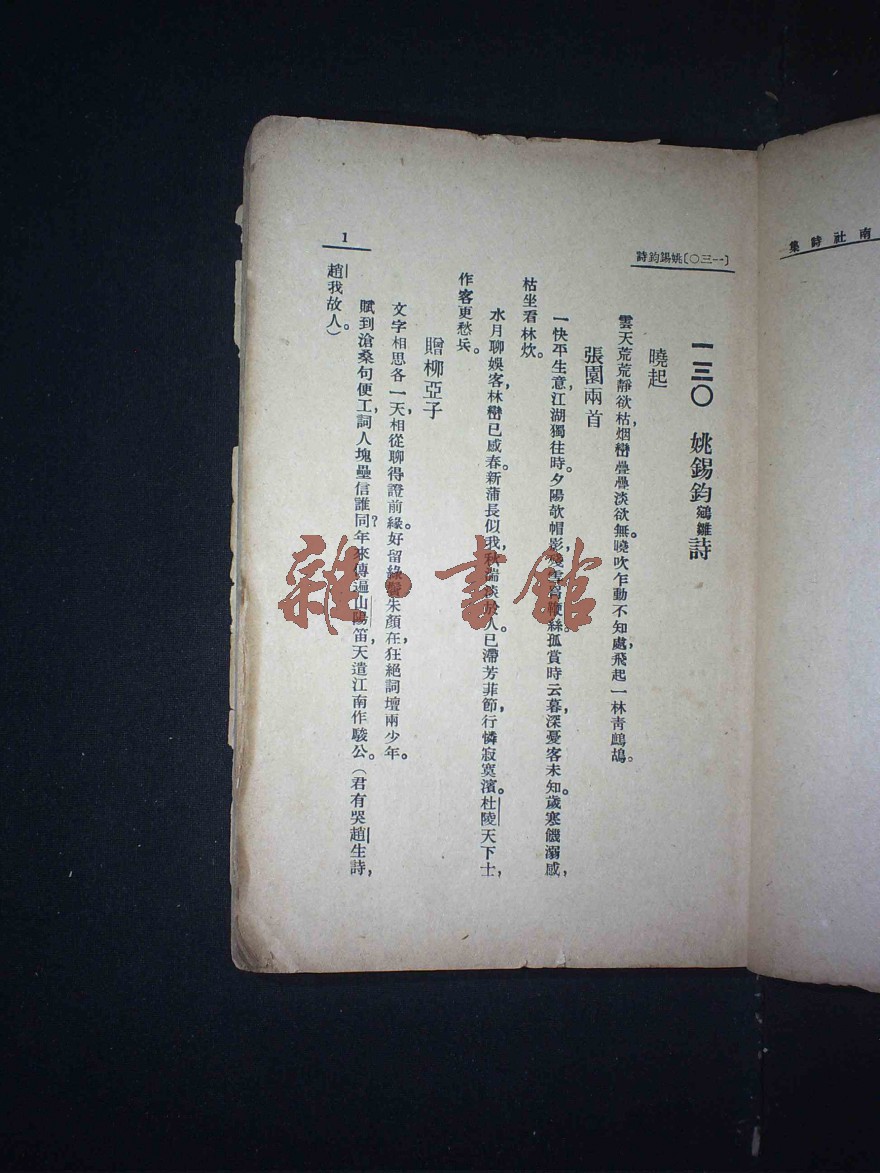 南社詩集
〔一三〇〕姚錫鈞詩
一三〇　姚錫鈞鵷雛詩
曉起
雲天荒荒靜欲枯，烟巒疊疊淡欲無。曉吹乍動不知處，飛起一林靑鷓鴣。
張園兩首
一快平生意，江湖獨往時。夕陽欹帽影，殘雪 鞭絲。孤賞時云暮，深憂客未知。歲寒饑溺感，
枯坐看林炊。
水月聊娛客，林巒已感春。新蒲長似我，秋 淡 人。已滯芳菲節，行憐寂寞濱。杜陵天下士，
作客更愁兵。
贈柳亞子
文字相思各一天，相從聊得證前緣。好留綠鬢朱顏在，狂絕詞壇兩少年。
賦到滄桑句便工，詞人塊壘信誰同？年來傳遍山陽笛，天遣江南作駿公。（君有哭趙生詩，
趙我故人。）
1
雜·書館